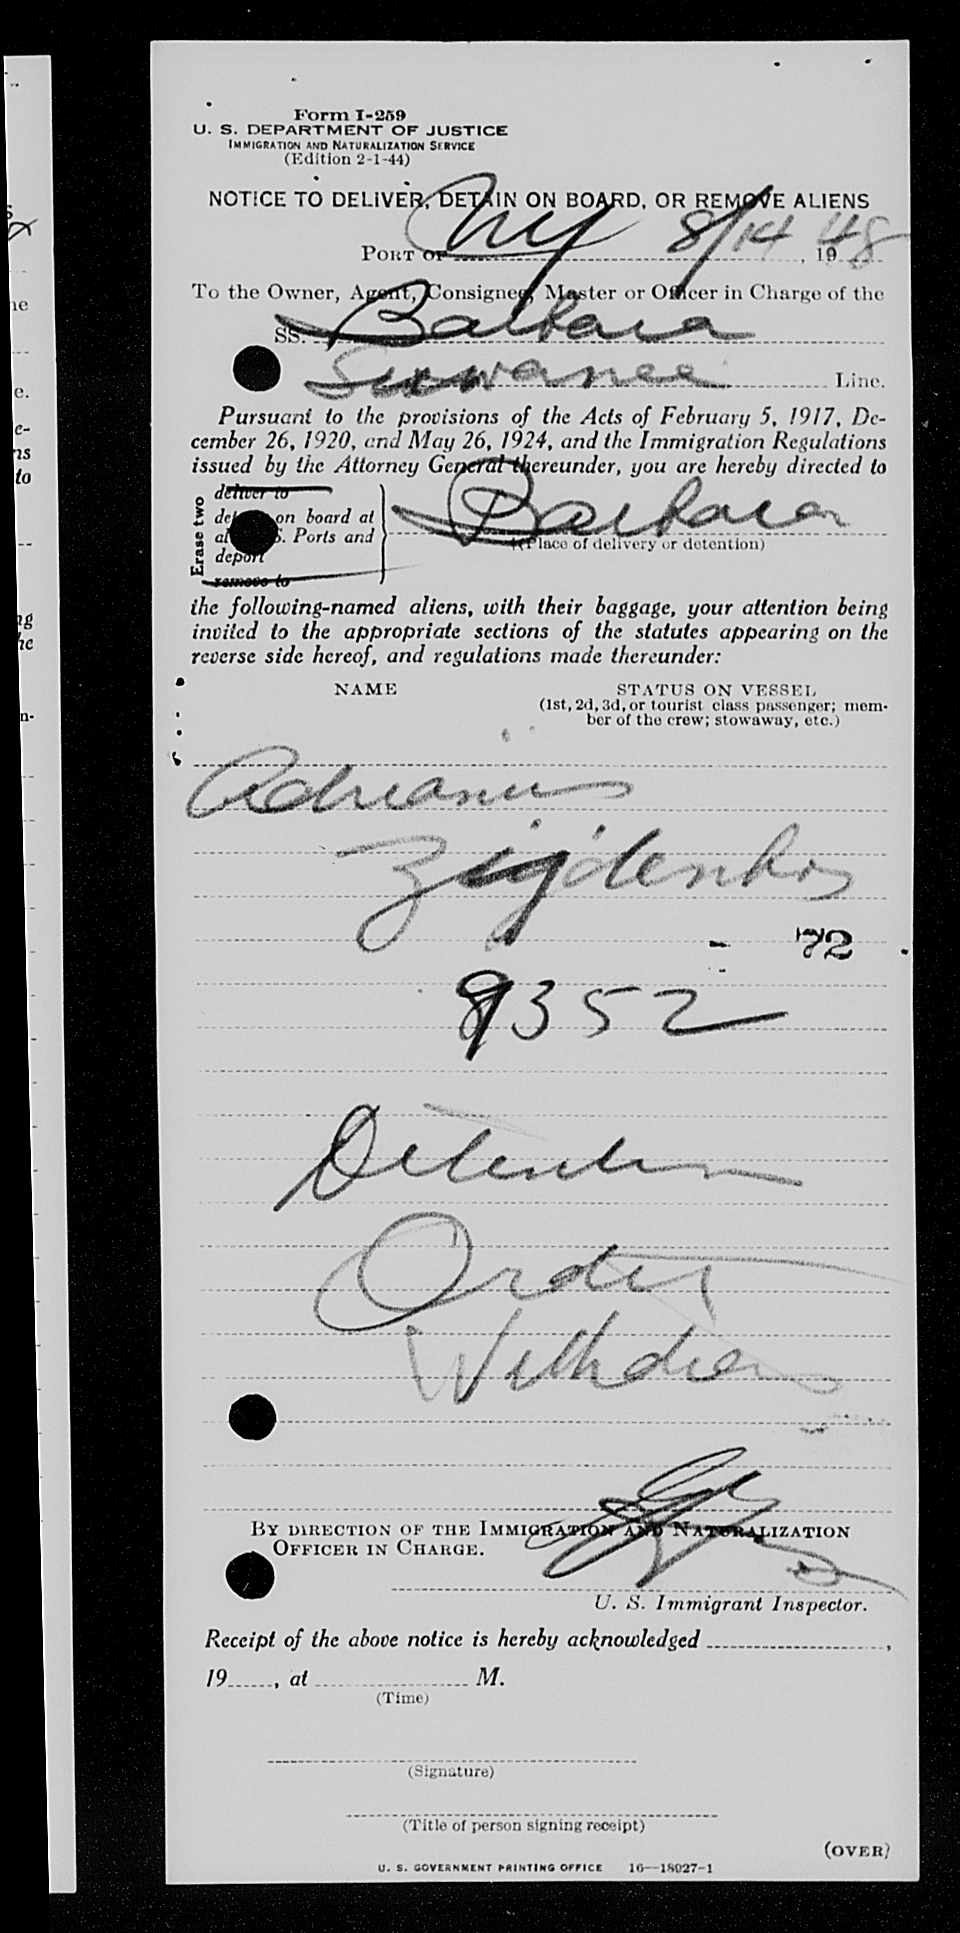 Form I-259
U. S. DEPARTMENT OF JUSTICE
IMMIGRATION AND NATURALIZATION SERVICE
(Edition 2-1-44)
NOTICE TO DELIVER, DETAIN ON BOARD, OR REMOVE ALIENS
PORT OF NY 8/14, 1948
To the Owner, Agent, Consignee, Master or Officer in Charge of the
SS. Barbara
Line.
Pursuant to the provisions of the Acts of February 5, 1917, De-
cember 26, 1920, and May 26, 1924, and the Immigration Regulations
issued by the Attorney General thereunder, you are hereby directed to
Erase two
deliver to
on board at
Ports and
deport
remove to
Barbara
(Place of delivery or detention)
the following-named aliens, with their baggage, your attention being
invited to the appropriate sections of the statutes appearing on the
reverse side hereof, and regulations made thereunder:
NAME STATUS ON VESSEL
(1st, 2d, 3d, or tourist class passenger; mem-
ber of the crew; stowaway, etc.)
Adrianus
- 72
352
Detention
Order
Withdrawn
BY DIRECTION OF THE IMMIGRATION AND NATURALIZATION
OFFICER IN CHARGE.
U. S. Immigrant Inspector.
Receipt of the above notice is hereby acknowledged ,
19 , at M.
(Time)
(Signature)
(Title of person signing receipt)
(OVER)
U. S. GOVERNMENT PRINTING OFFICE 16—18027-1